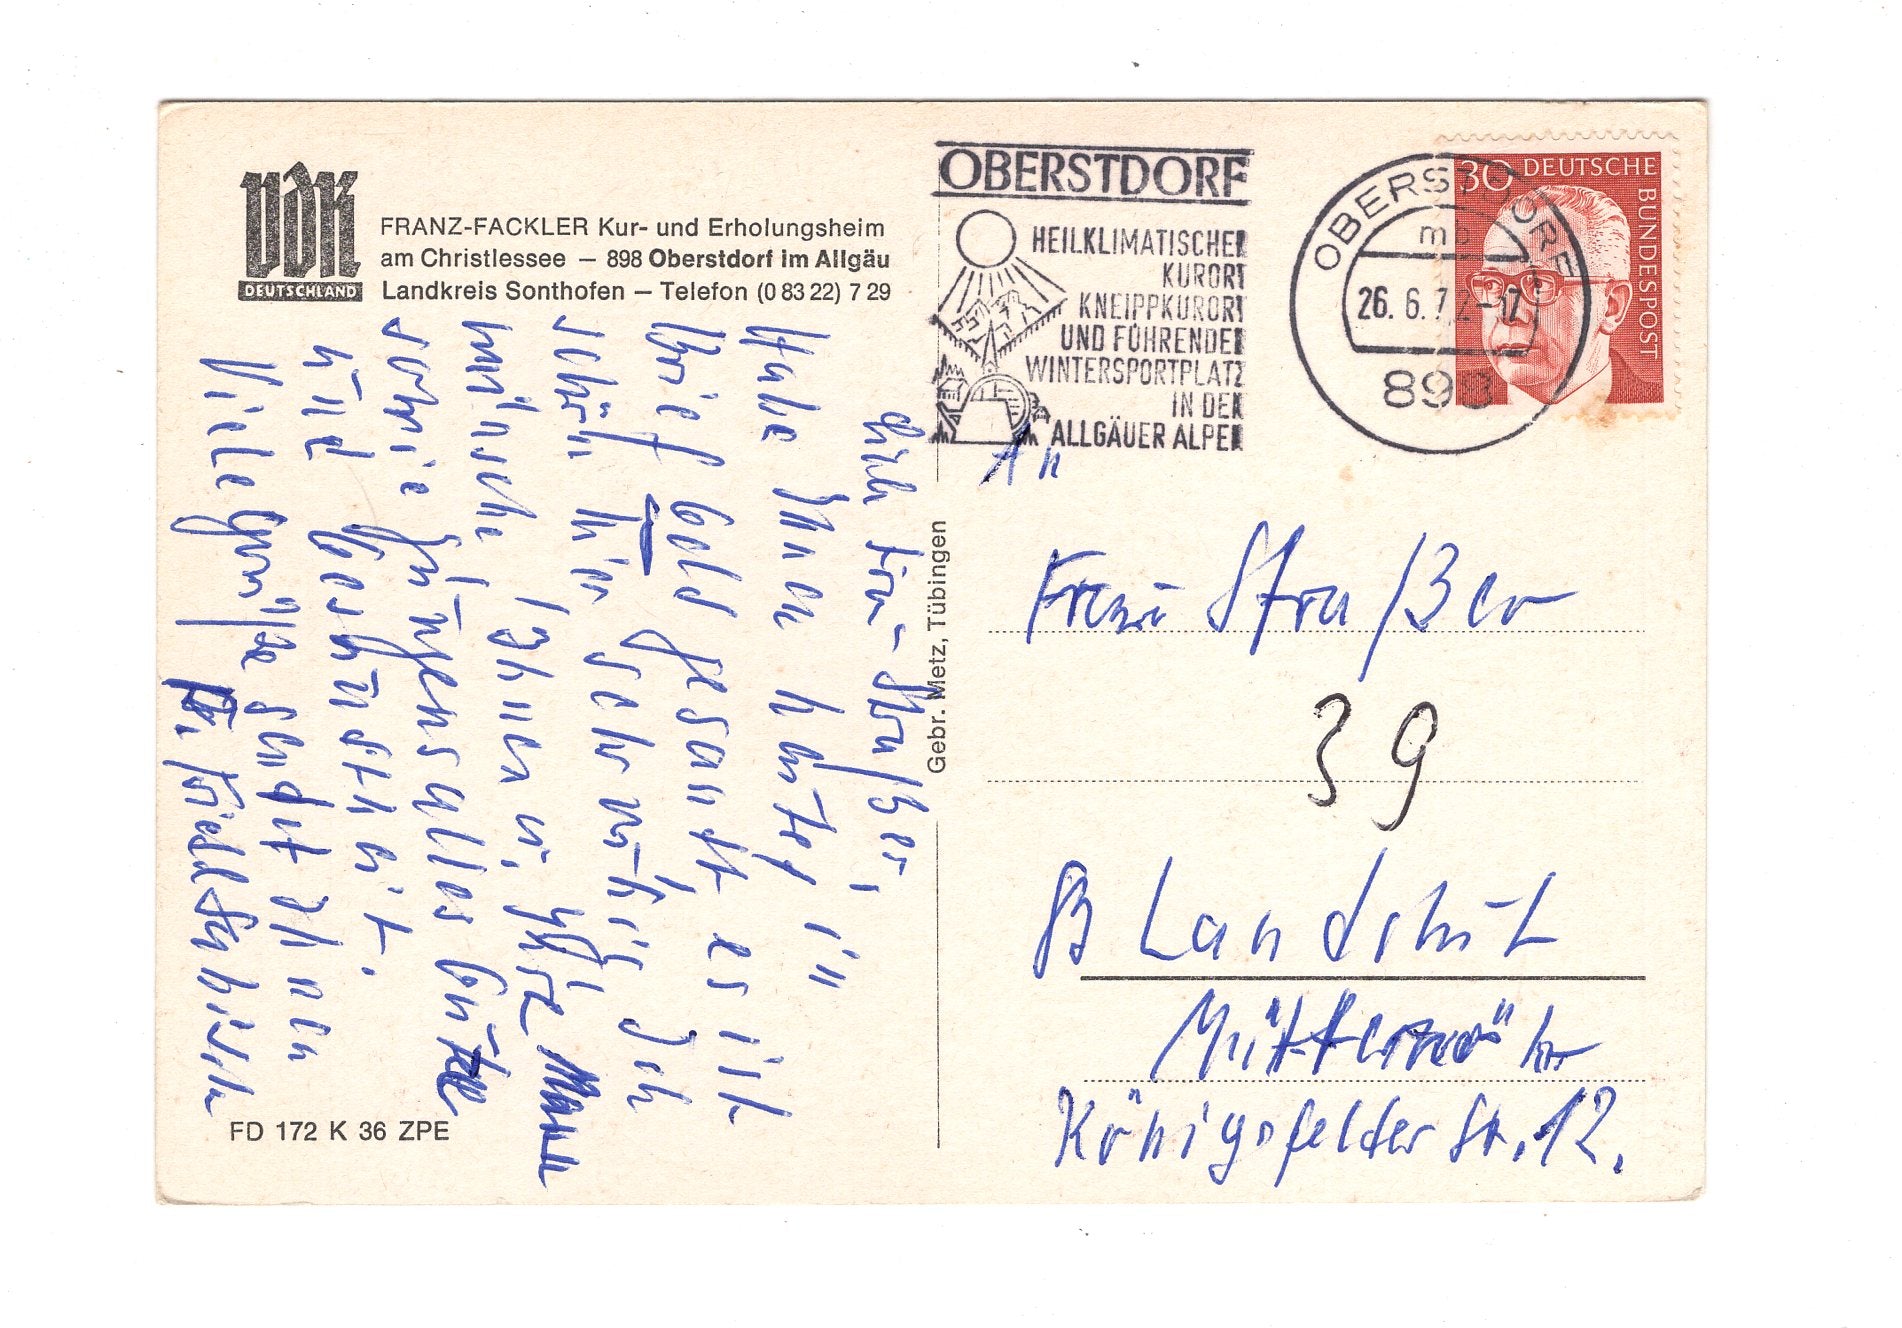 VdK
DEUTSCHLAND
FRANZ-FACKLER Kur- und Erholungsheim
am Christlessee – 898 Oberstdorf im Allgäu
Landkreis Sonthofen – Telefon (0 83 22) 7 29
OBERSTDORF
HEILKLIMATISCHER
KURORT
KNEIPPKURORT
UND FÜHRENDER
WINTERSPORTPLATZ
IN DEN
ALLGÄUER ALPEN
OBERSTDORF
mb
26.6.72-17
898
30 DEUTSCHE
BUNDESPOST
Frau Straßer,
Habe Ihnen heute
Brief Geld gesandt, es ist
schön hier sehr ruhig Ich
wünsche Ihnen u. Ihre
sowie Jungens alles Gute
und Gesundheit.
Viele Grüße sendet Ihnen
Gebr. Metz, Tübingen
An
Frau Straßer
39
8 Landshut
Königsfelder St. 12.
FD 172 K 36 ZPE